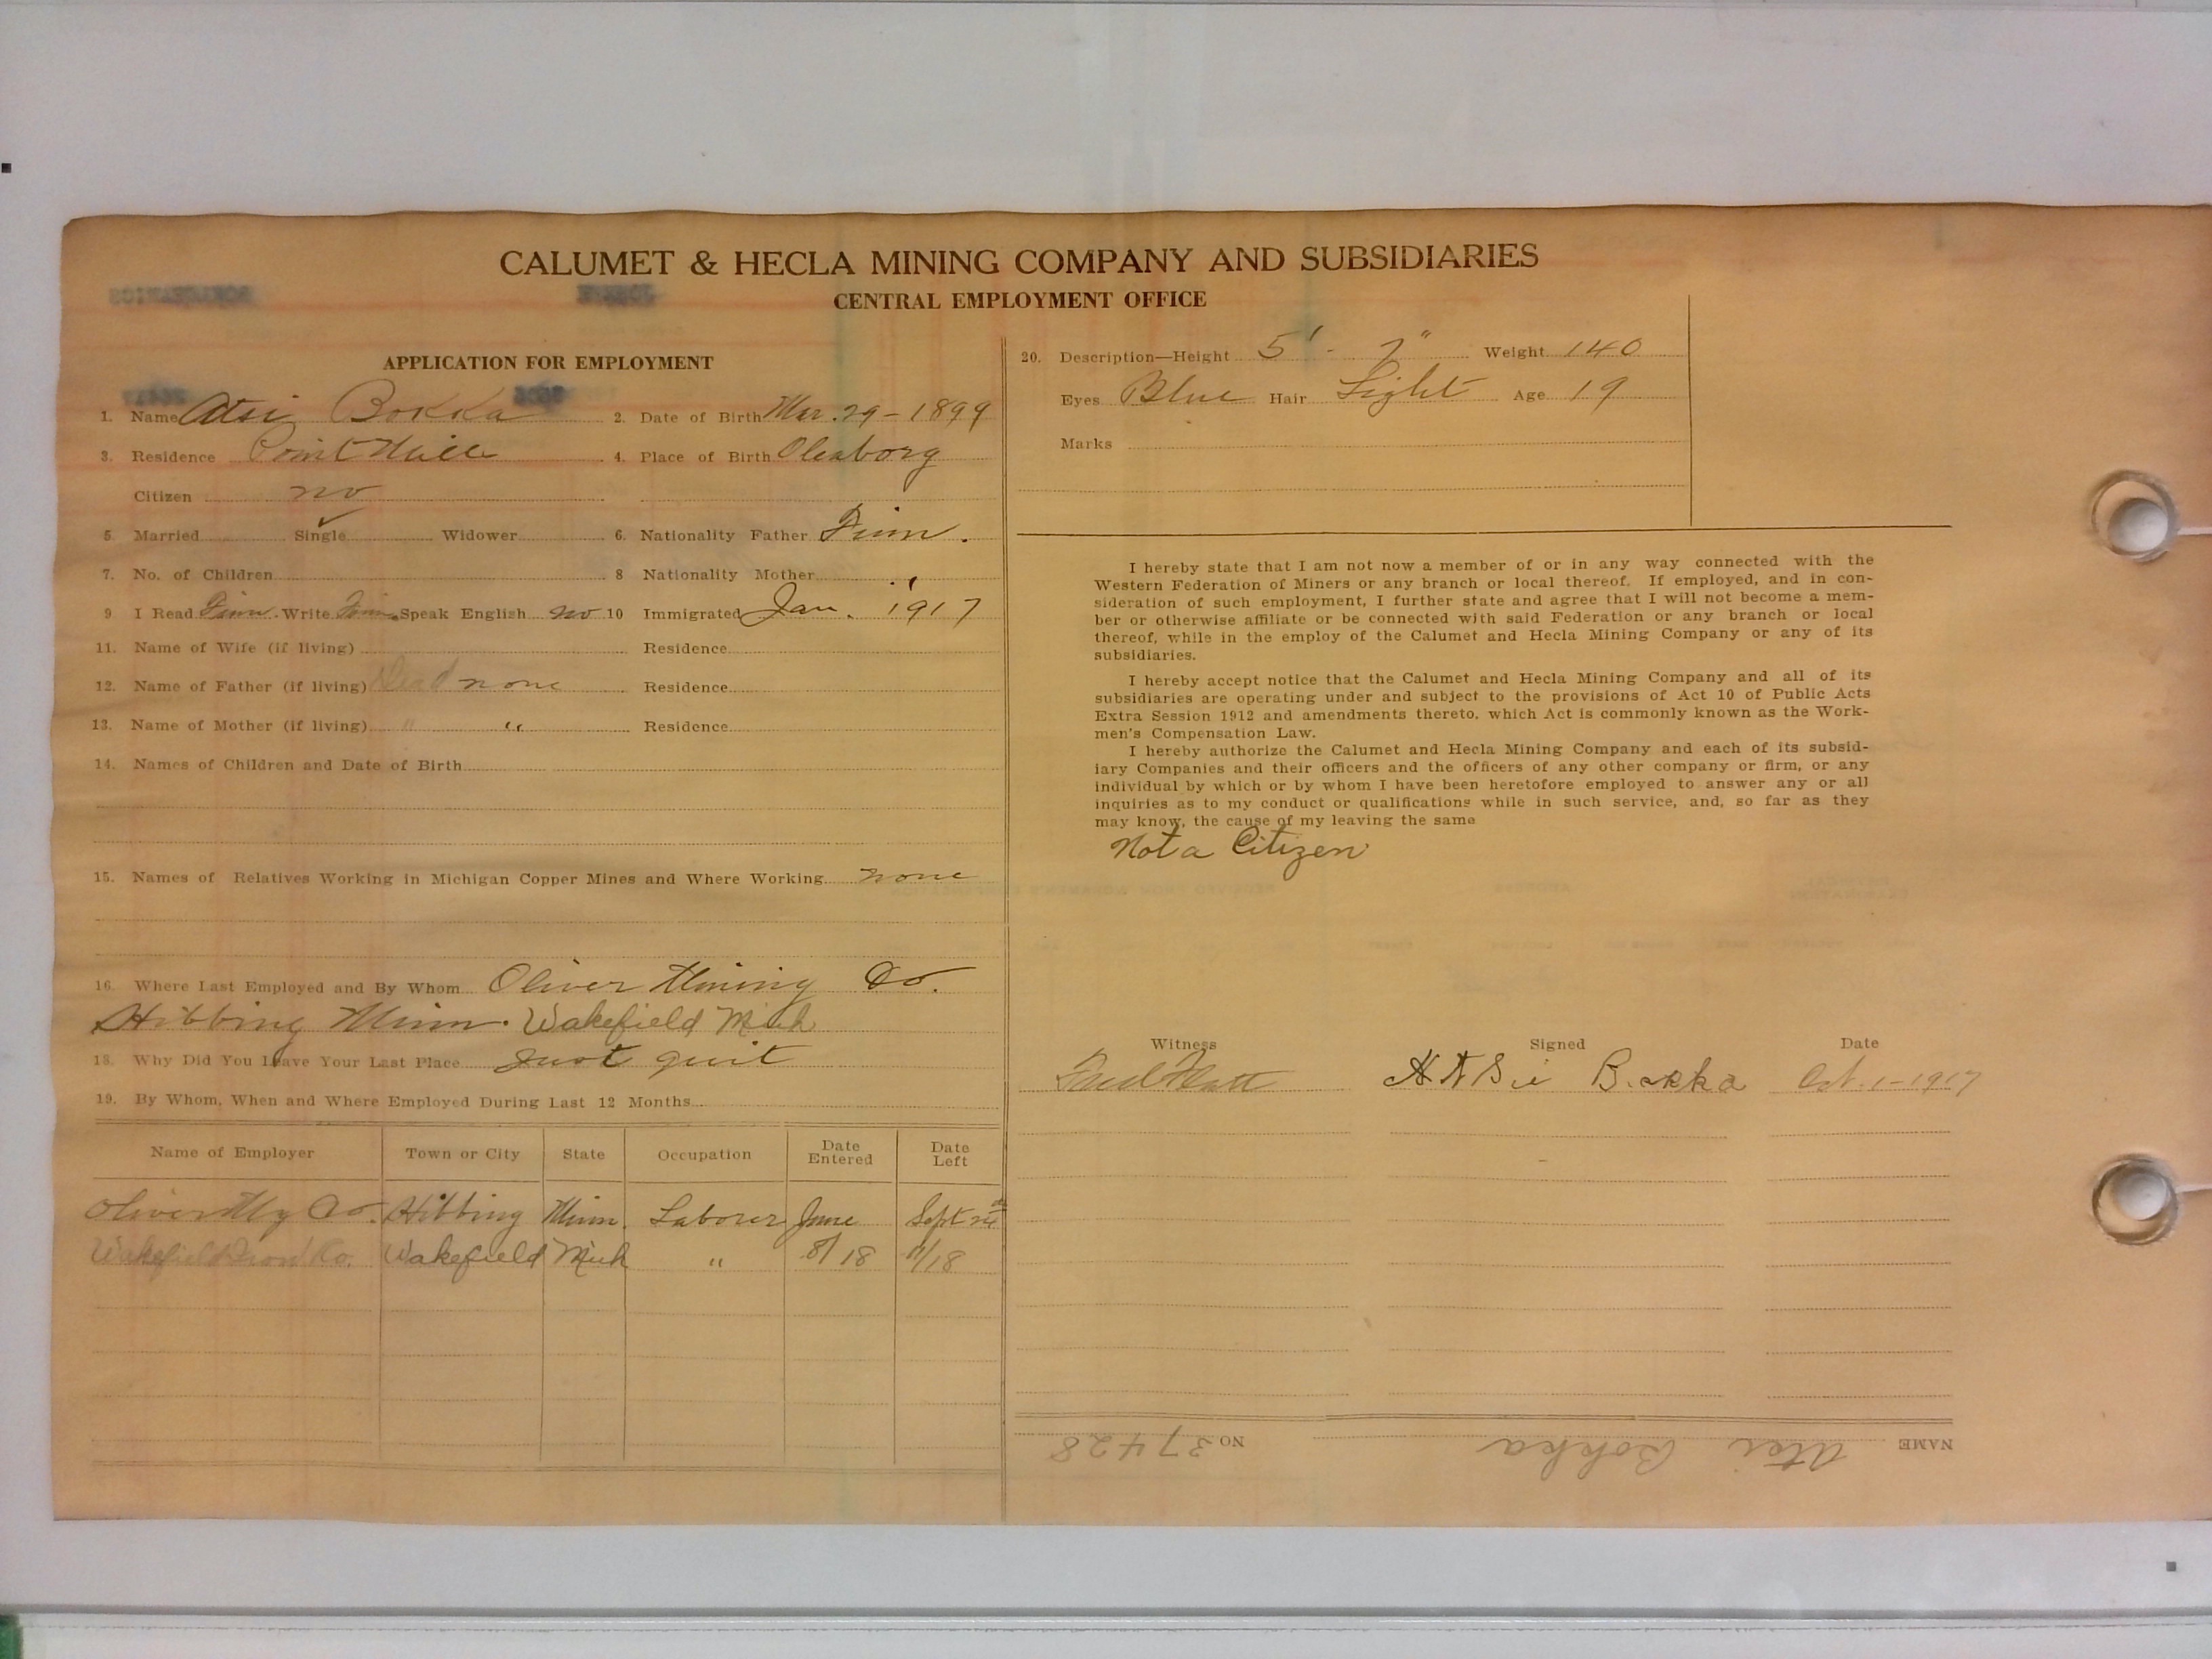 CALUMET & HECLA MINING COMPANY AND SUBSIDIARIES
CENTRAL EMPLOYMENT OFFICE
APPLICATION FOR EMPLOYMENT
1. Name Atsi Bokka 2. Date of Birth Mar. 29-1899
3. Residence Point Mills 4. Place of Birth Oleaborg
Citizen no
5. Married Single ✓ Widower 6. Nationality Father Finn.
7. No. of Children 8 Nationality Mother "
9 I Read Finn. Write Finn. Speak English no 10 Immigrated Jan. 1917
11. Name of Wife (if living) Residence
12. Name of Father (if living) Dead none Residence
13. Name of Mother (if living) " " Residence
14. Names of Children and Date of Birth
15. Names of Relatives Working in Michigan Copper Mines and Where Working none
16. Where Last Employed and By Whom Oliver Mining Co.
Hibbing Minn. Wakefield Mich
18. Why Did You Leave Your Last Place Just quit
19. By Whom, When and Where Employed During Last 12 Months
Name of Employer Town or City State Occupation Date Entered Date Left
Oliver Mg Co. Hibbing Minn. Laborer June Sept
Wakefield Iron Co. Wakefield Mich " 8/18 11/18
20. Description—Height 5' - 7" Weight 140
Eyes Blue Hair Light Age 19
Marks
I hereby state that I am not now a member of or in any way connected with the
Western Federation of Miners or any branch or local thereof. If employed, and in con-
sideration of such employment, I further state and agree that I will not become a mem-
ber or otherwise affiliate or be connected with said Federation or any branch or local
thereof, while in the employ of the Calumet and Hecla Mining Company or any of its
subsidiaries.
I hereby accept notice that the Calumet and Hecla Mining Company and all of its
subsidiaries are operating under and subject to the provisions of Act 10 of Public Acts
Extra Session 1912 and amendments thereto, which Act is commonly known as the Work-
men's Compensation Law.
I hereby authorize the Calumet and Hecla Mining Company and each of its subsid-
iary Companies and their officers and the officers of any other company or firm, or any
individual by which or by whom I have been heretofore employed to answer any or all
inquiries as to my conduct or qualifications while in such service, and, so far as they
may know, the cause of my leaving the same
Not a Citizen
Witness Signed Date
Bokka Oct. 1-1917
NAME Atsi Bokka NO 37428